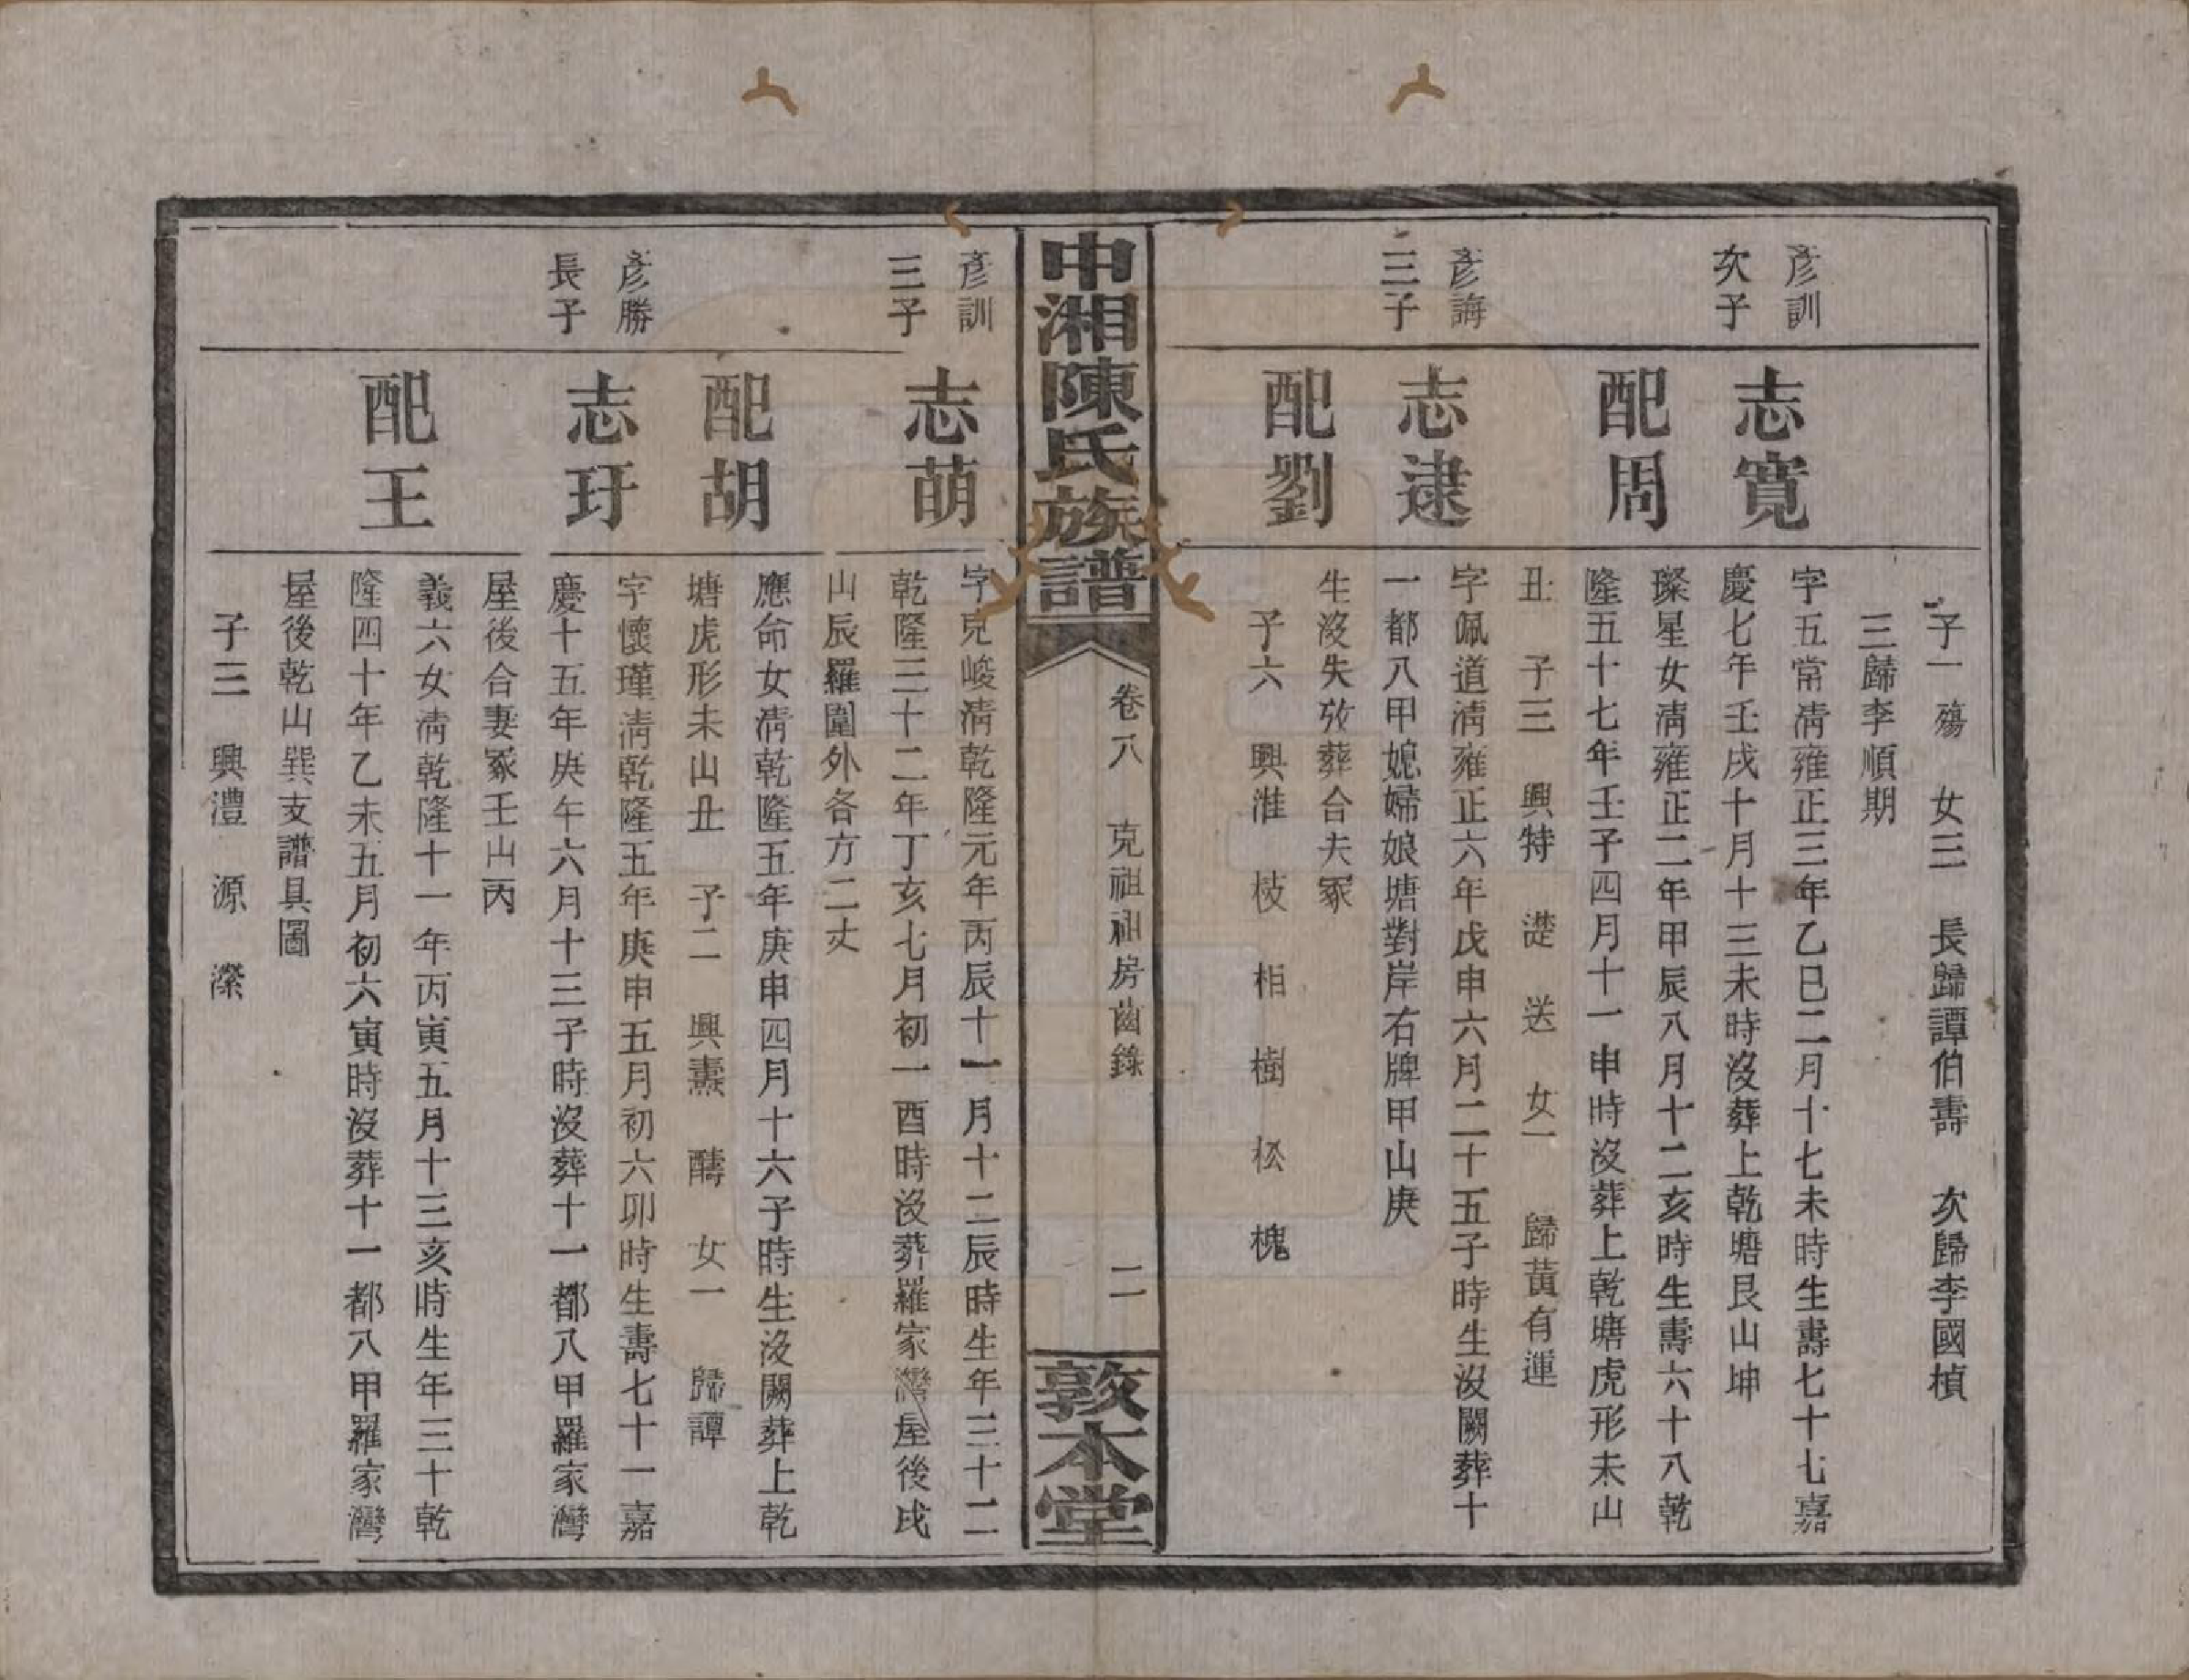 子一殤 女三 長歸譚伯壽 次歸李國楨
三歸李順期
彥訓
次子
志寬
字五常淸雍正三年乙巳二月十七未時生壽七十七嘉
慶七年壬戌十月十三未時沒葬上乾塘艮山坤
配周
璨星女淸雍正二年甲辰八月十二亥時生壽六十八乾
隆五十七年壬子四月十一申時沒葬上乾塘虎形未山
丑 子三 興特 濋 送 女一 歸黃有運
彥誨
三子
志逮
字佩道淸雍正六年戊申六月二十五子時生沒闕葬十
一都八甲媳婦娘塘對岸右牌甲山庚
配劉
生沒失攷葬合夫冢
子六 興淮 枝 柏 樹 松 槐
中湘陳氏族譜
卷八 克祖祖房齒錄
二
敦本堂
彥訓
三子
志萌
字克峻淸乾隆元年丙辰十一月十二辰時生年三十二
乾隆三十二年丁亥七月初一酉時沒葬羅家灣屋後戌
山辰羅圍外各方二丈
配胡
應命女淸乾隆五年庚申四月十六子時生沒闕葬上乾
塘虎形未山丑 子二 興燾 醻 女一 歸譚
彥勝
長子
志玗
字懷瑾淸乾隆五年庚申五月初六卯時生壽七十一嘉
慶十五年庚午六月十三子時沒葬十一都八甲羅家灣
屋後合妻冢壬山丙
配王
義六女淸乾隆十一年丙寅五月十三亥時生年三十乾
隆四十年乙未五月初六寅時沒葬十一都八甲羅家灣
屋後乾山巽支譜具圖
子三 興澧 源 瀠